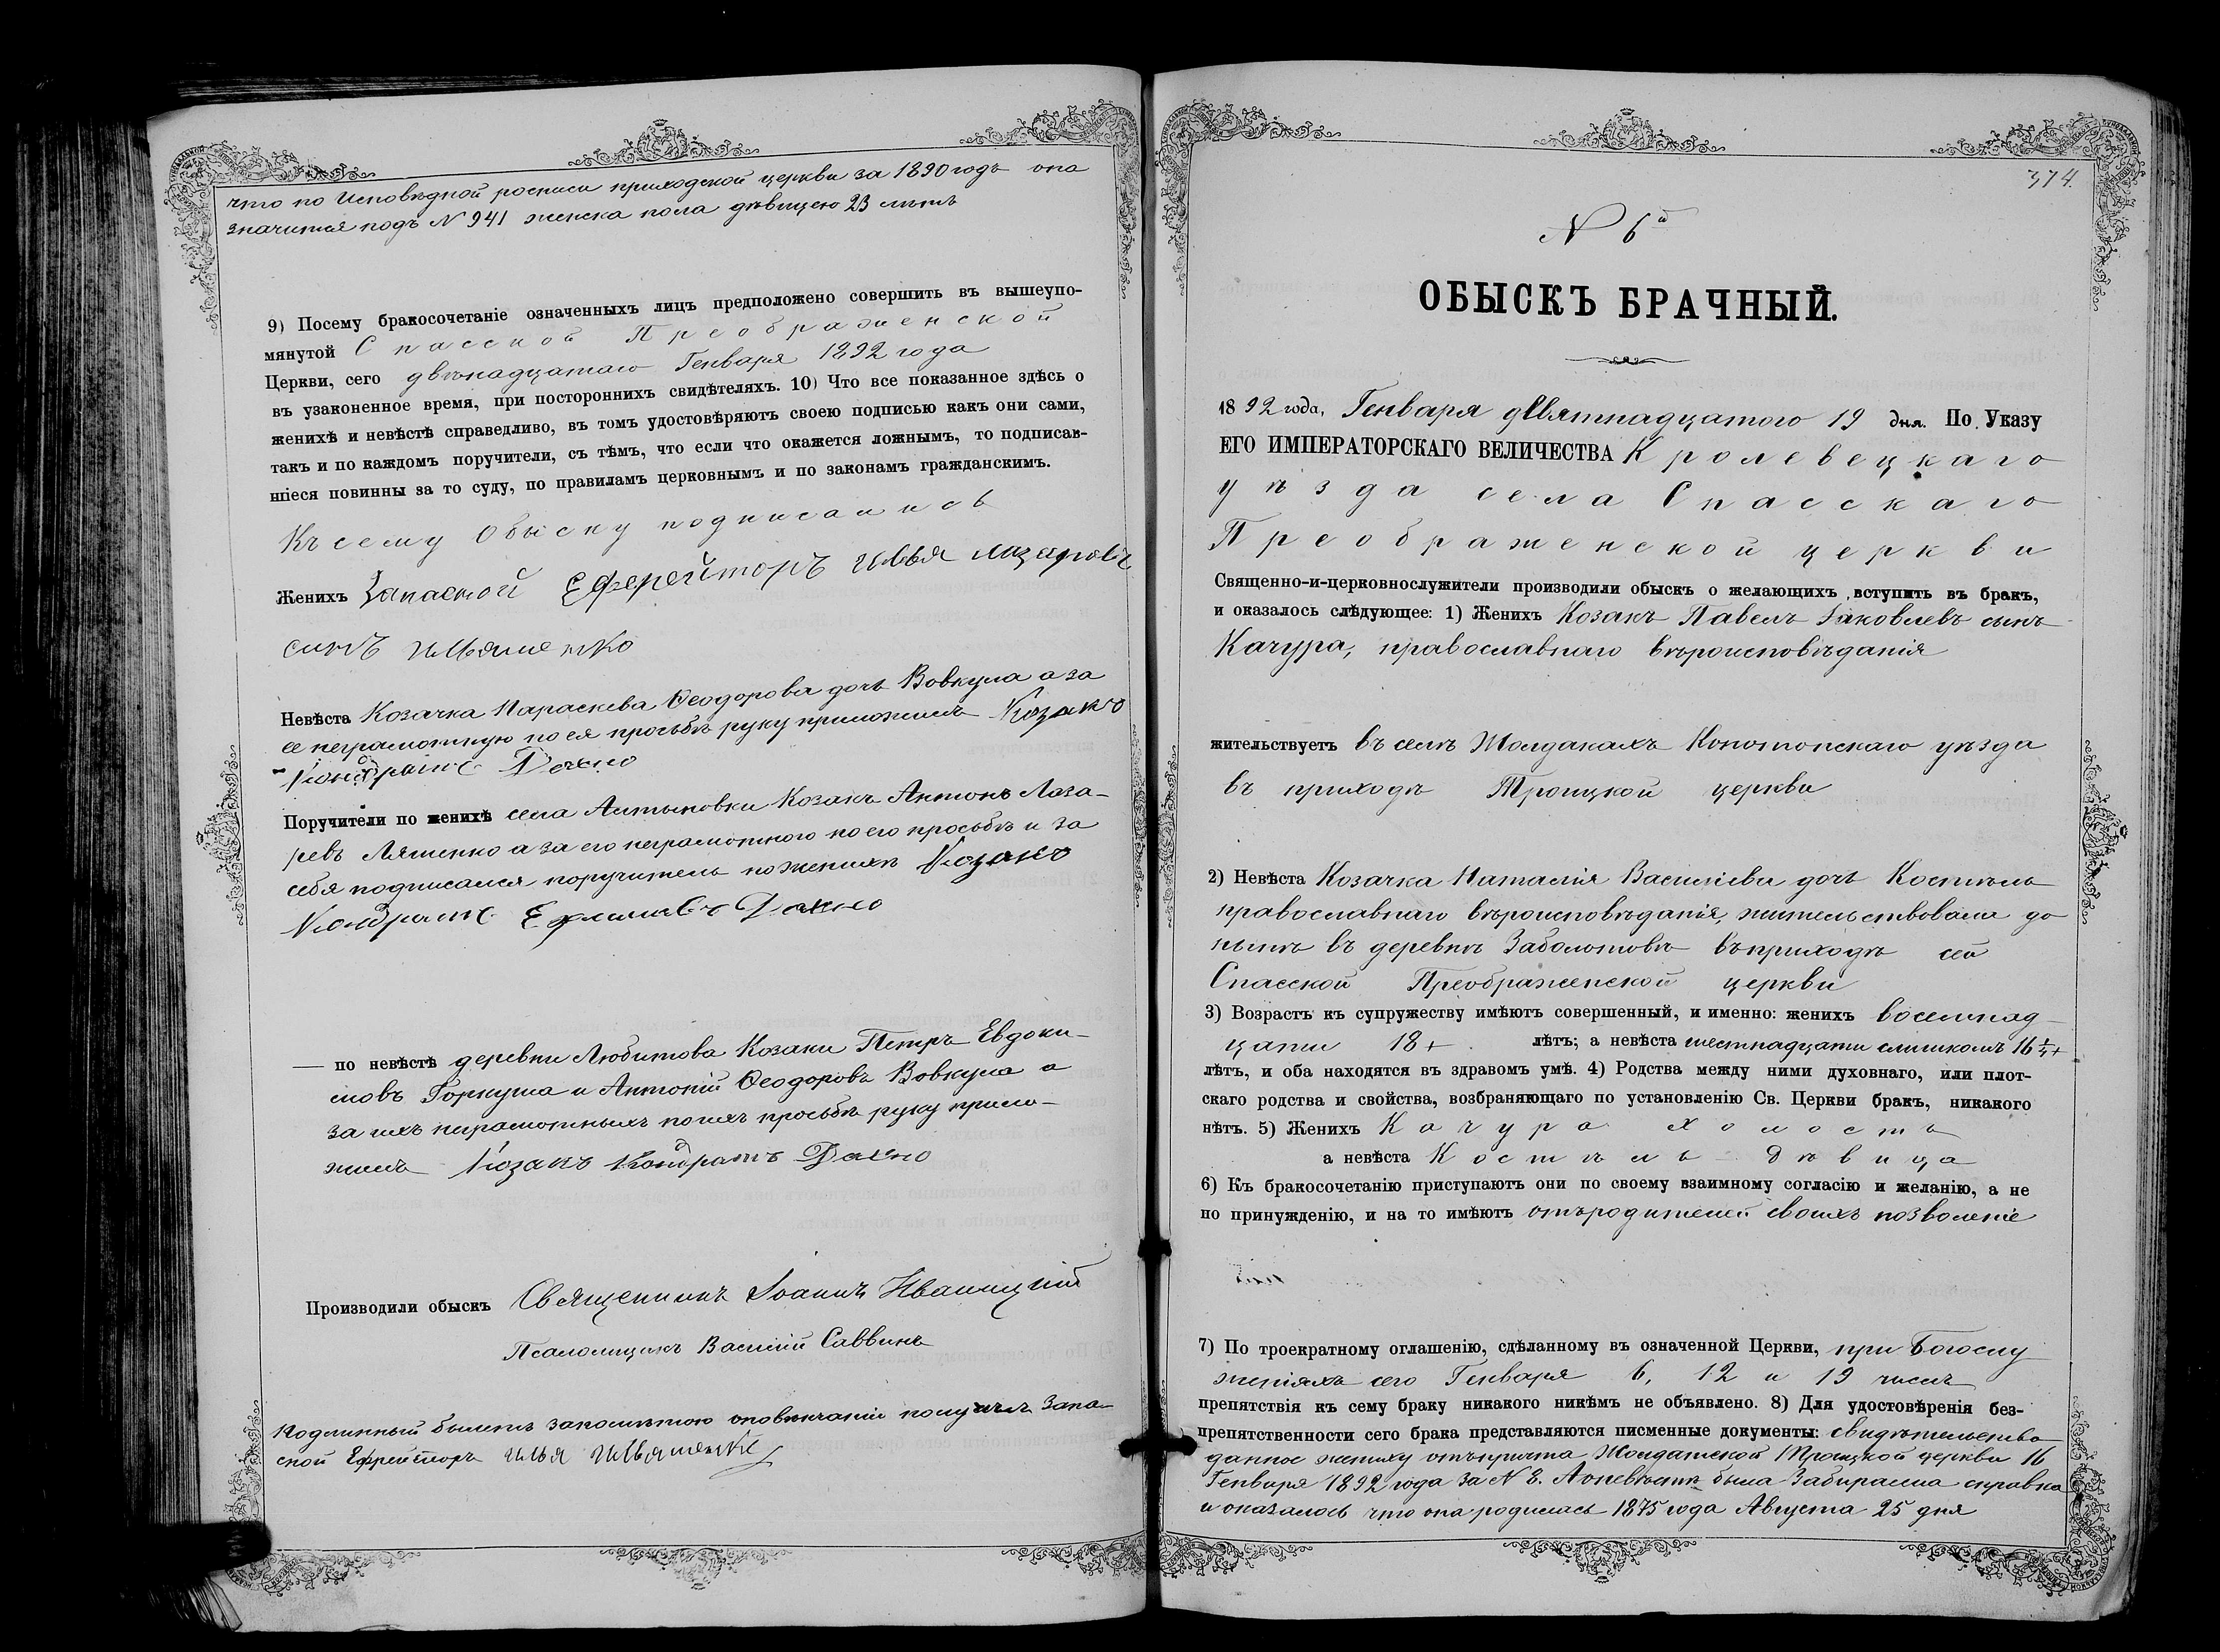 что по Исповѣдной росписи приходской церкви за 1890 годъ она
значится подъ N 941 женска пола дѣвицею 23 лѣтъ
9) Посему бракосочетаніе означенныхъ лицъ предположено совершить въ вышеупо-
мянутой Спасской Преображенской
Церкви, сего двѣнадцатаго Генваря 1892 года
въ узаконенное время, при постороннихъ свидѣтеляхъ. 10) Что все показанное здѣсь о
женихѣ и невѣстѣ справедливо, въ томъ удостовѣряютъ своею подписью какъ они сами,
такъ и по каждомъ поручители, съ тѣмъ, что если что окажется ложнымъ, то подписав-
шіеся повинны за то суду, по правиламъ церковнымъ и по законамъ гражданскимъ.
Къ сему Обыску подписались
Женихъ Запасной Ефрейторъ Илья Лазаревъ
синъ Ильяшенко
Невѣста Козачка Параскева Ѳеодорова дочь Вовкула а за
ее неграмотную по ея просьбѣ руку приложилъ Козакъ
Кондратъ Дахно
Поручители по женихѣ села Алтыновки Козакъ Антонъ Лаза-
ревъ Ляшенко а за его неграмотного по его просьбѣ и за
себя подписался поручитель по женихѣ Козакъ
Кондратъ Дахно
— по невѣстѣ деревни Любитова Козаки Петръ Евдоки-
мовъ Горкуша и Антоній Ѳеодоровъ Вовкула а
за ихъ неграмотныхъ по ихъ просьбѣ руку прило-
жилъ Козакъ Кондратъ Дахно
Производили обыскъ Священникъ Іоаннъ Иваницкій
Псаломщикъ Василій Саввинъ
Подлинный билетъ запомѣтою оповѣнчаніи получилъ Запа-
сной Ефрейторъ Илья Ильяшенко
374.
N 6й
ОБЫСКЪ БРАЧНЫЙ.
1892 года, Генваря девятнадцатого 19 дня. По Указу
ЕГО ИМПЕРАТОРСКАГО ВЕЛИЧЕСТВА Кролевецкаго
уѣзда села Спасскаго
Преображенской церкви
Священно-и-церковнослужители производили обыскъ о желающихъ вступить въ бракъ,
и оказалось слѣдующее: 1) Женихъ Козакъ Павелъ Іаковлевъ сынъ
Качура, православнаго вѣроисповѣданія
жительствуетъ въ селѣ Жолдакахъ Конотопскаго уѣзда
въ приходѣ Троицкой церкви
2) Невѣста Козачка Наталія Василіева дочь Костѣль
православнаго вѣроисповѣданія, жительствовала до
нынѣ въ деревнѣ Заболотовѣ въ приходѣ сей
Спасской Преображенской церкви
3) Возрастъ къ супружеству имѣютъ совершенный, и именно: женихъ восемнад-
цати 18+ лѣтъ; а невѣста шестнадцати слишкомъ 16
лѣтъ, и оба находятся въ здравомъ умѣ. 4) Родства между ними духовнаго, или плот-
скаго родства и свойства, возбраняющаго по установленію Св. Церкви бракъ, никакого
нѣтъ. 5) Женихъ Качура холостъ
а невѣста Костѣль дѣвица
6) Къ бракосочетанію приступаютъ они по своему взаимному согласію и желанію, а не
по принужденію, и на то имѣютъ отъ родителей своихъ позволеніе
7) По троекратному оглашенію, сдѣланному въ означенной Церкви, при Богослу
женіяхъ сего Генваря 6, 12 и 19 числъ
препятствія къ сему браку никакого никѣмъ не объявлено. 8) Для удостовѣренія без-
препятственности сего брака представляются писменные документы: свидѣтельство
данное жениху отъ причта Жолдатской Троицкой церкви 16
Генваря 1892 года за N 8. А о невѣстѣ была Забираема справка
и оказалось что она родилась 1875 года Августа 25 дня